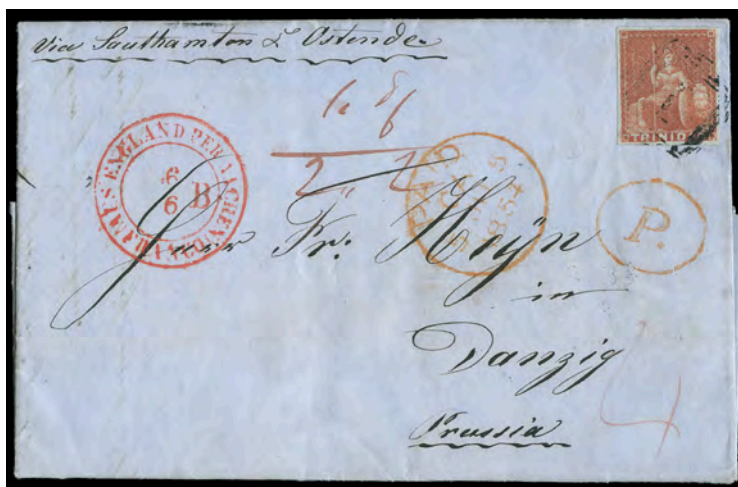 Via Southamton & Ostende
TRINID
AUS ENGLAND PER AACHEN
FRANCO
6
6 B
PAID
1854
P.
Herr Fr: Heyn
in
Danzig
4
Prussia